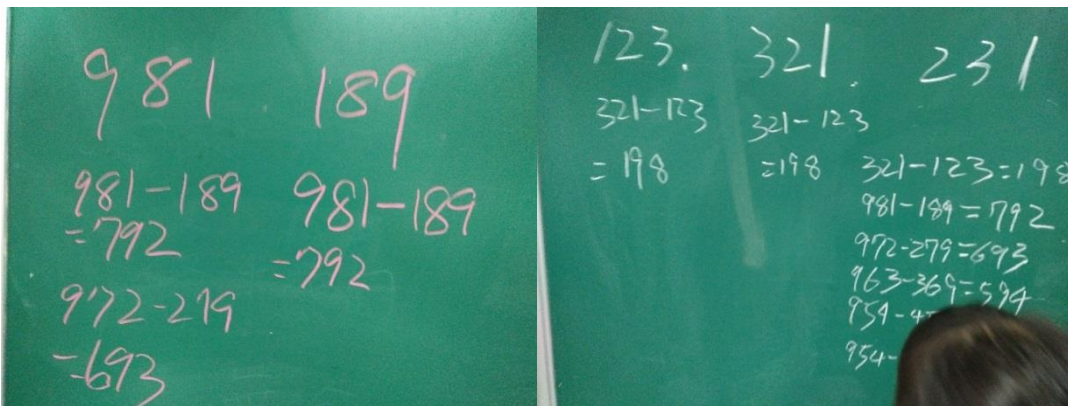 981
189
981-189
=792
972-279
=693
981-189
=792
123.
321.
231
321-123
=198
321-123
=198
321-123=198
981-189=792
972-279=693
963-369=594
954-4
954-